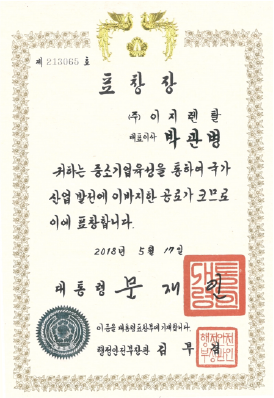 제 213065 호
표 창 장
(주) 이지렌탈
대표이사 박관병
귀하는 중소기업육성을 통하여 국가
산업 발전에 이바지한 공로가 크므로
이에 표창합니다.
2018년 5월 17일
대통령 문재인
이 증을 대통령표창부에 기재합니다.
행정안전부장관 김부겸